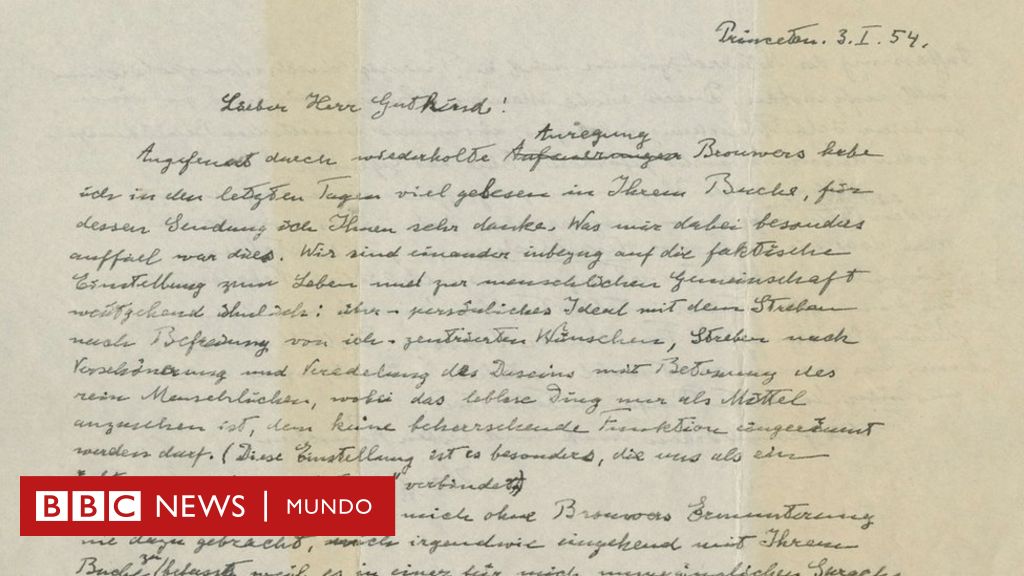 Princeton. 3. I. 54.
Lieber Herr Gutkind!
Anregung
Angefeuert durch wiederholte Brouwers habe
ich in den letzten Tagen viel gelesen in Ihrem Buche, für
dessen Sendung ich Ihnen sehr danke. Was mir dabei besonders
auffiel war dies. Wir sind einander inbezug auf die faktische
Einstellung zum Leben und zur menschlichen Gemeinschaft
weitgehend ähnlich: persönliches Ideal mit dem Streben
nach Befreiung von ich-zentrierten Wünschen, Streben nach
Verschönerung und Veredelung des Daseins mit Betonung des
rein Menschlichen, wobei das leblose Ding nur als Mittel
anzusehen ist, dem keine beherrschende Funktion eingeräumt
werden darf. (Diese Einstellung ist es besonders, die uns als ein
" verbindet)
mich ohne Brouwers Ermunterung
nie dazu gebracht, mich irgendwie eingehend mit Ihrem
Buche zu befassen, weil es in einer für mich unzugänglichen Sprache
BBC NEWS | MUNDO